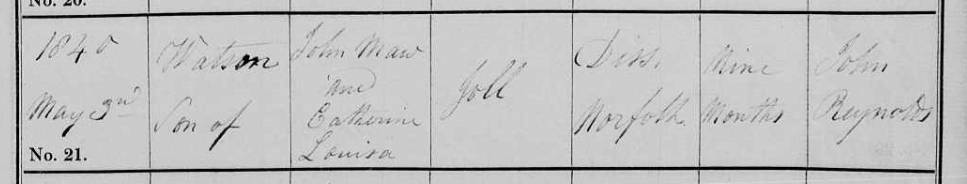 No. 20.
1840
May 3rd
No. 21.
Watson
Son of
John Maw
and
Catherine
Louisa
Joll
Diss.
Norfolk.
Nine
Months
John
Reynolds